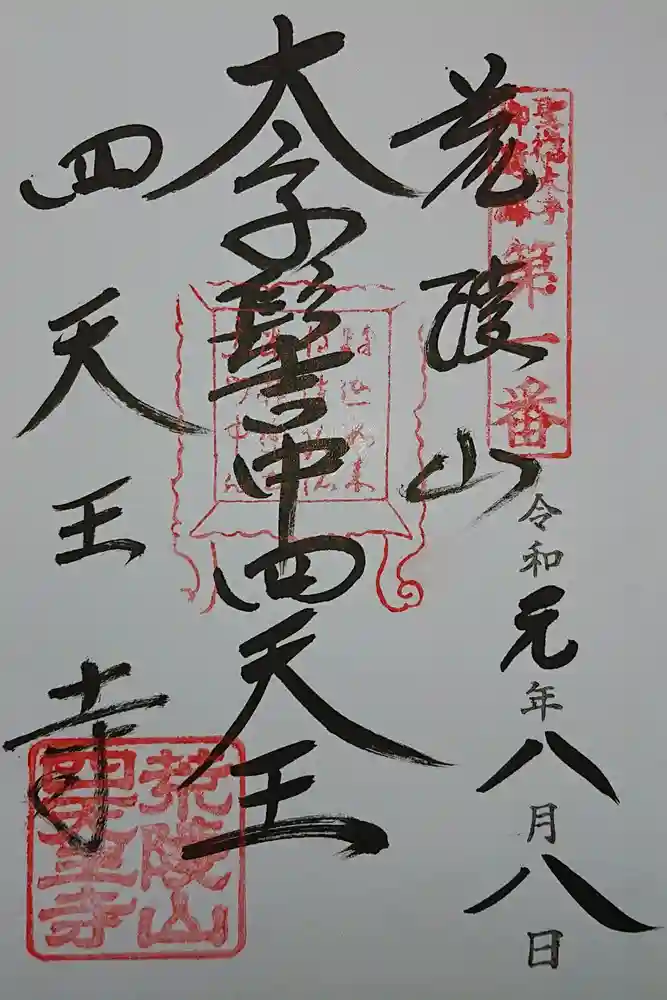 聖徳太子
第一番
荒陵山
令和元年八月八日
太子髻中四天王
四天王寺
荒陵山
四天王寺